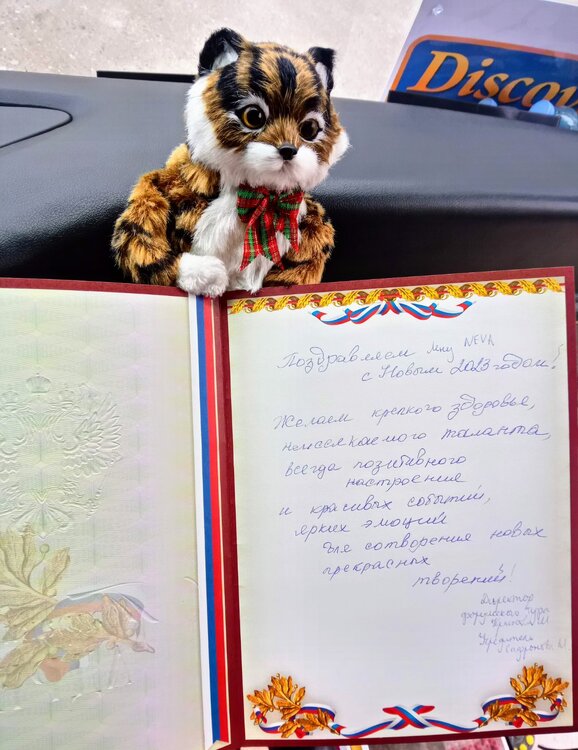 Discov
Поздравляем NEVA
с Новым 2023 годом!
Желаем крепкого здоровья,
неиссякаемого таланта,
всегда позитивного
настроения
и красивых событий,
ярких эмоций
для сотворения новых
прекрасных
творений!
Директор
Учредитель